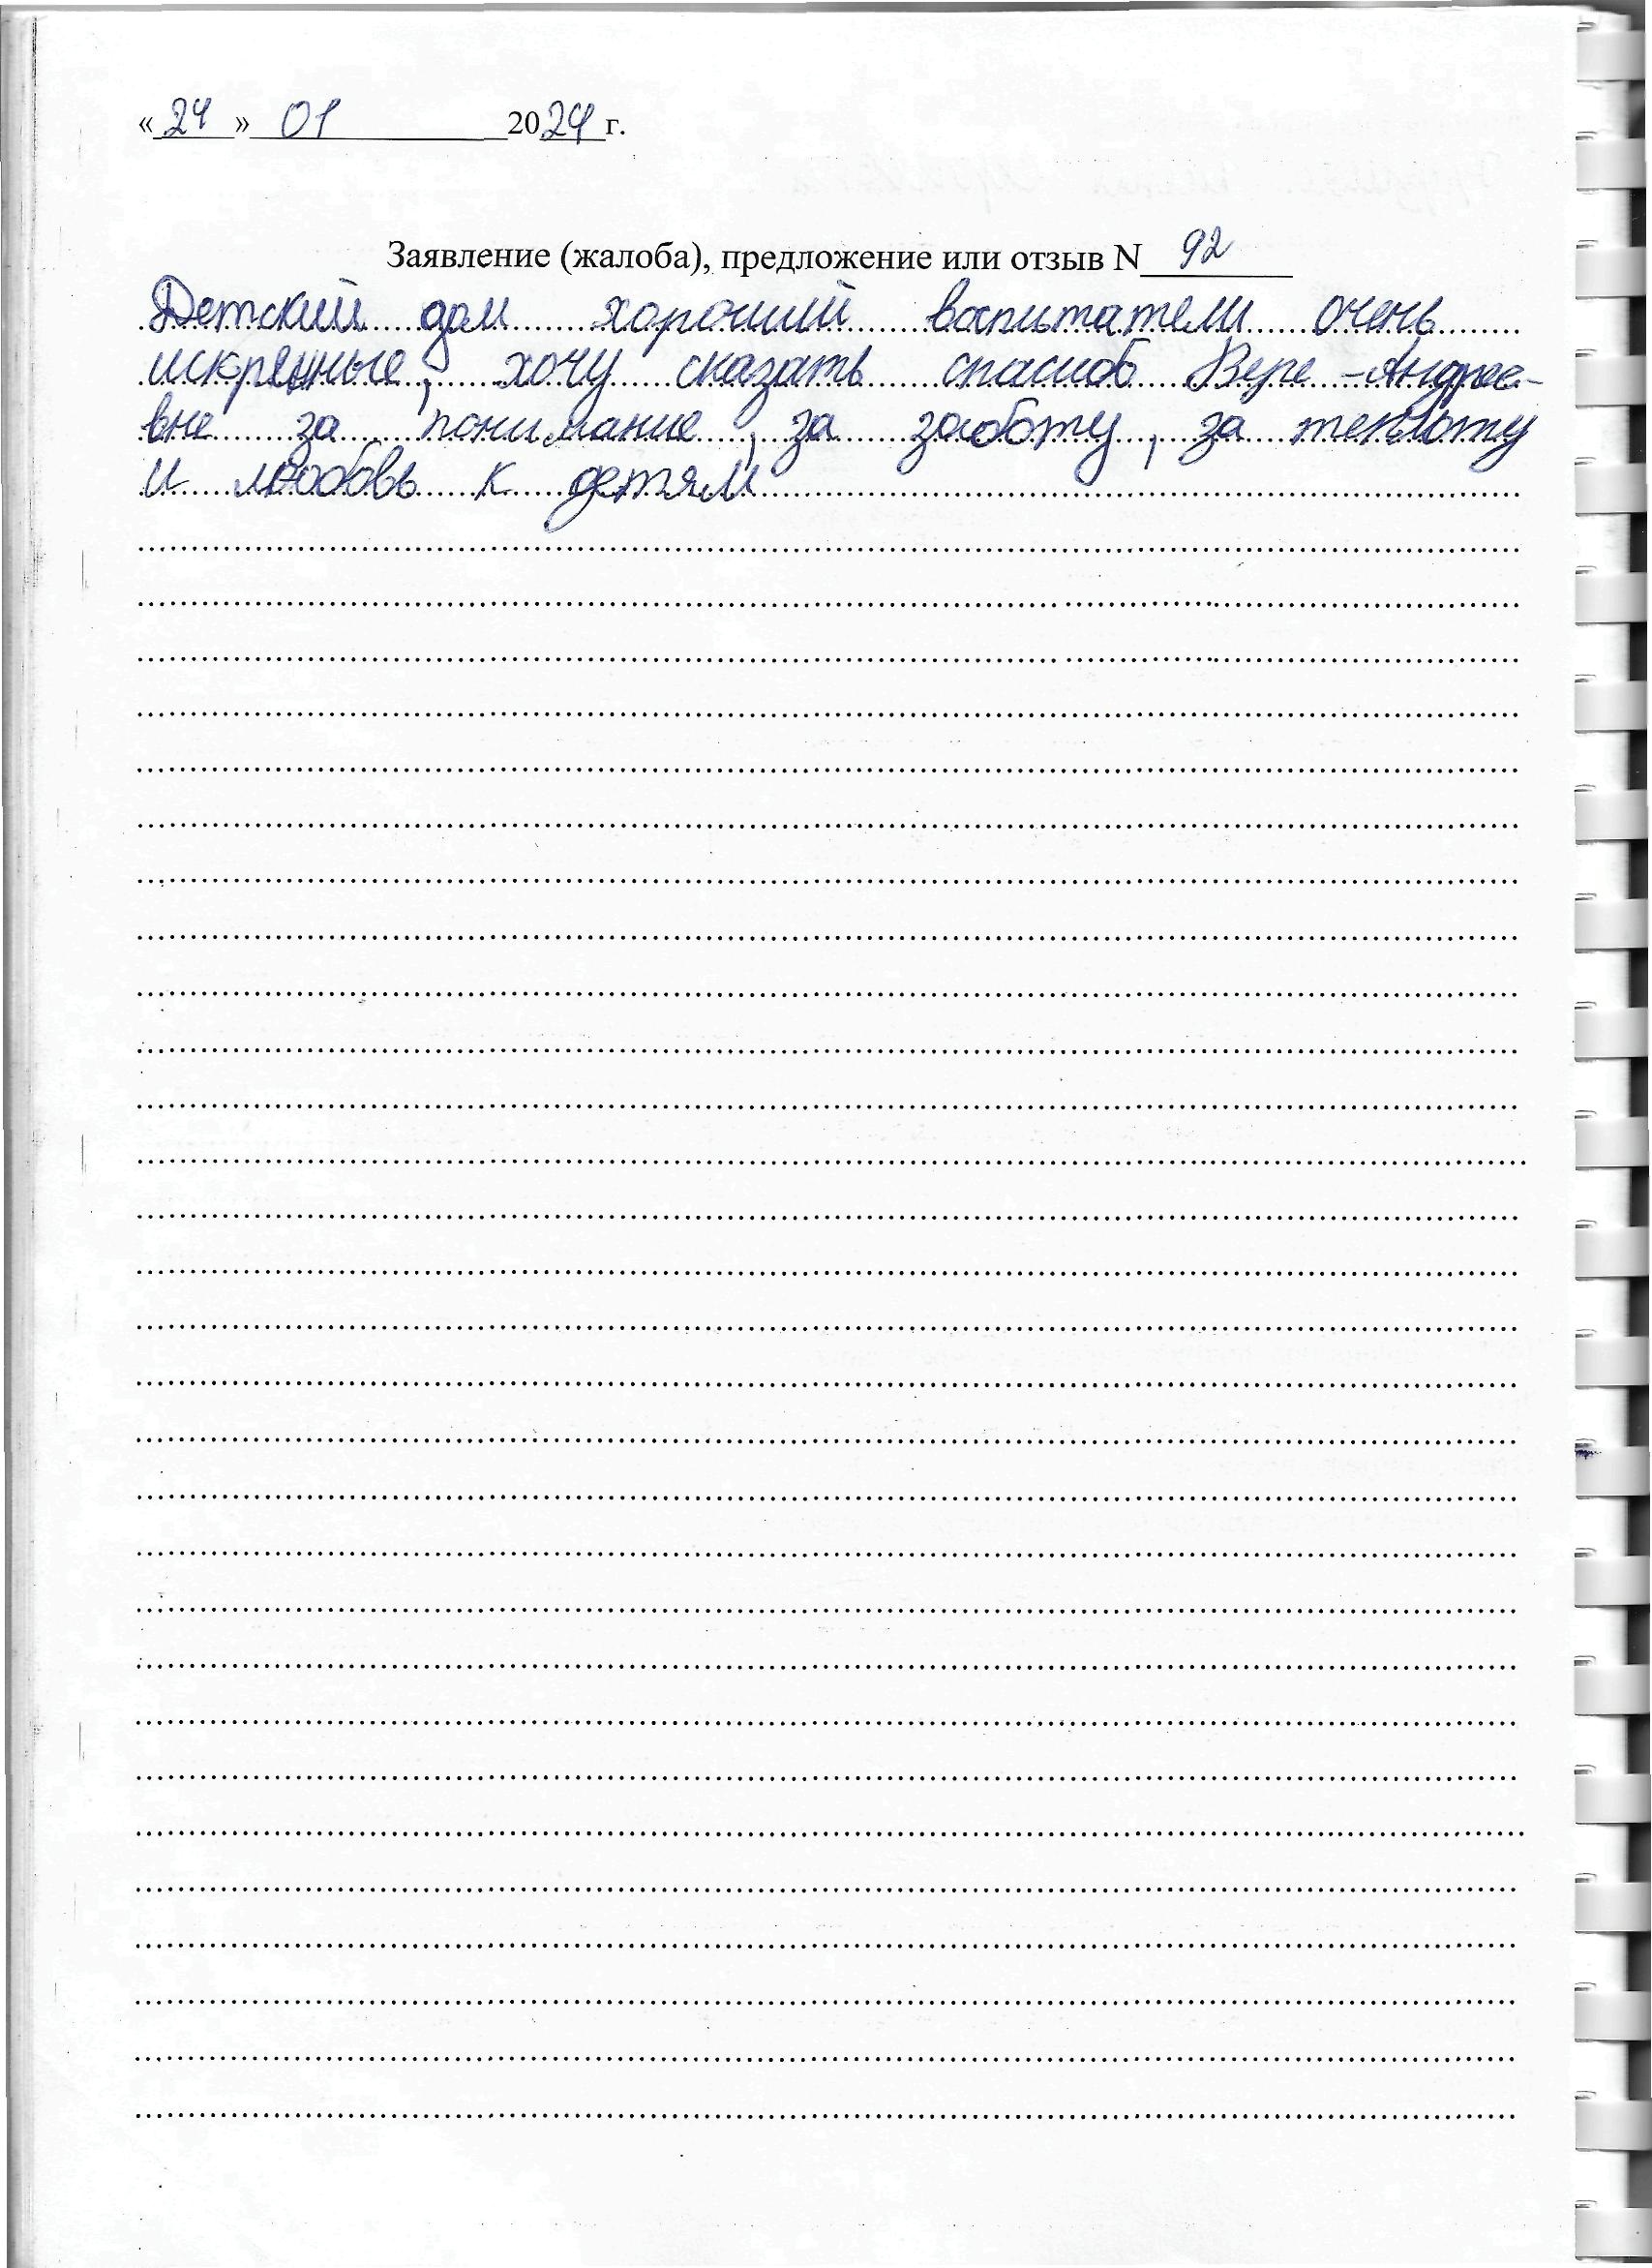 «24» 01 2024 г.
Заявление (жалоба), предложение или отзыв N 92
Детский дом хороший воспитатели очень
искренные, хочу сказать спасиоб Вере -Андрее-
вне за понимание, за заоботу, за теплоту
и любовь к детям